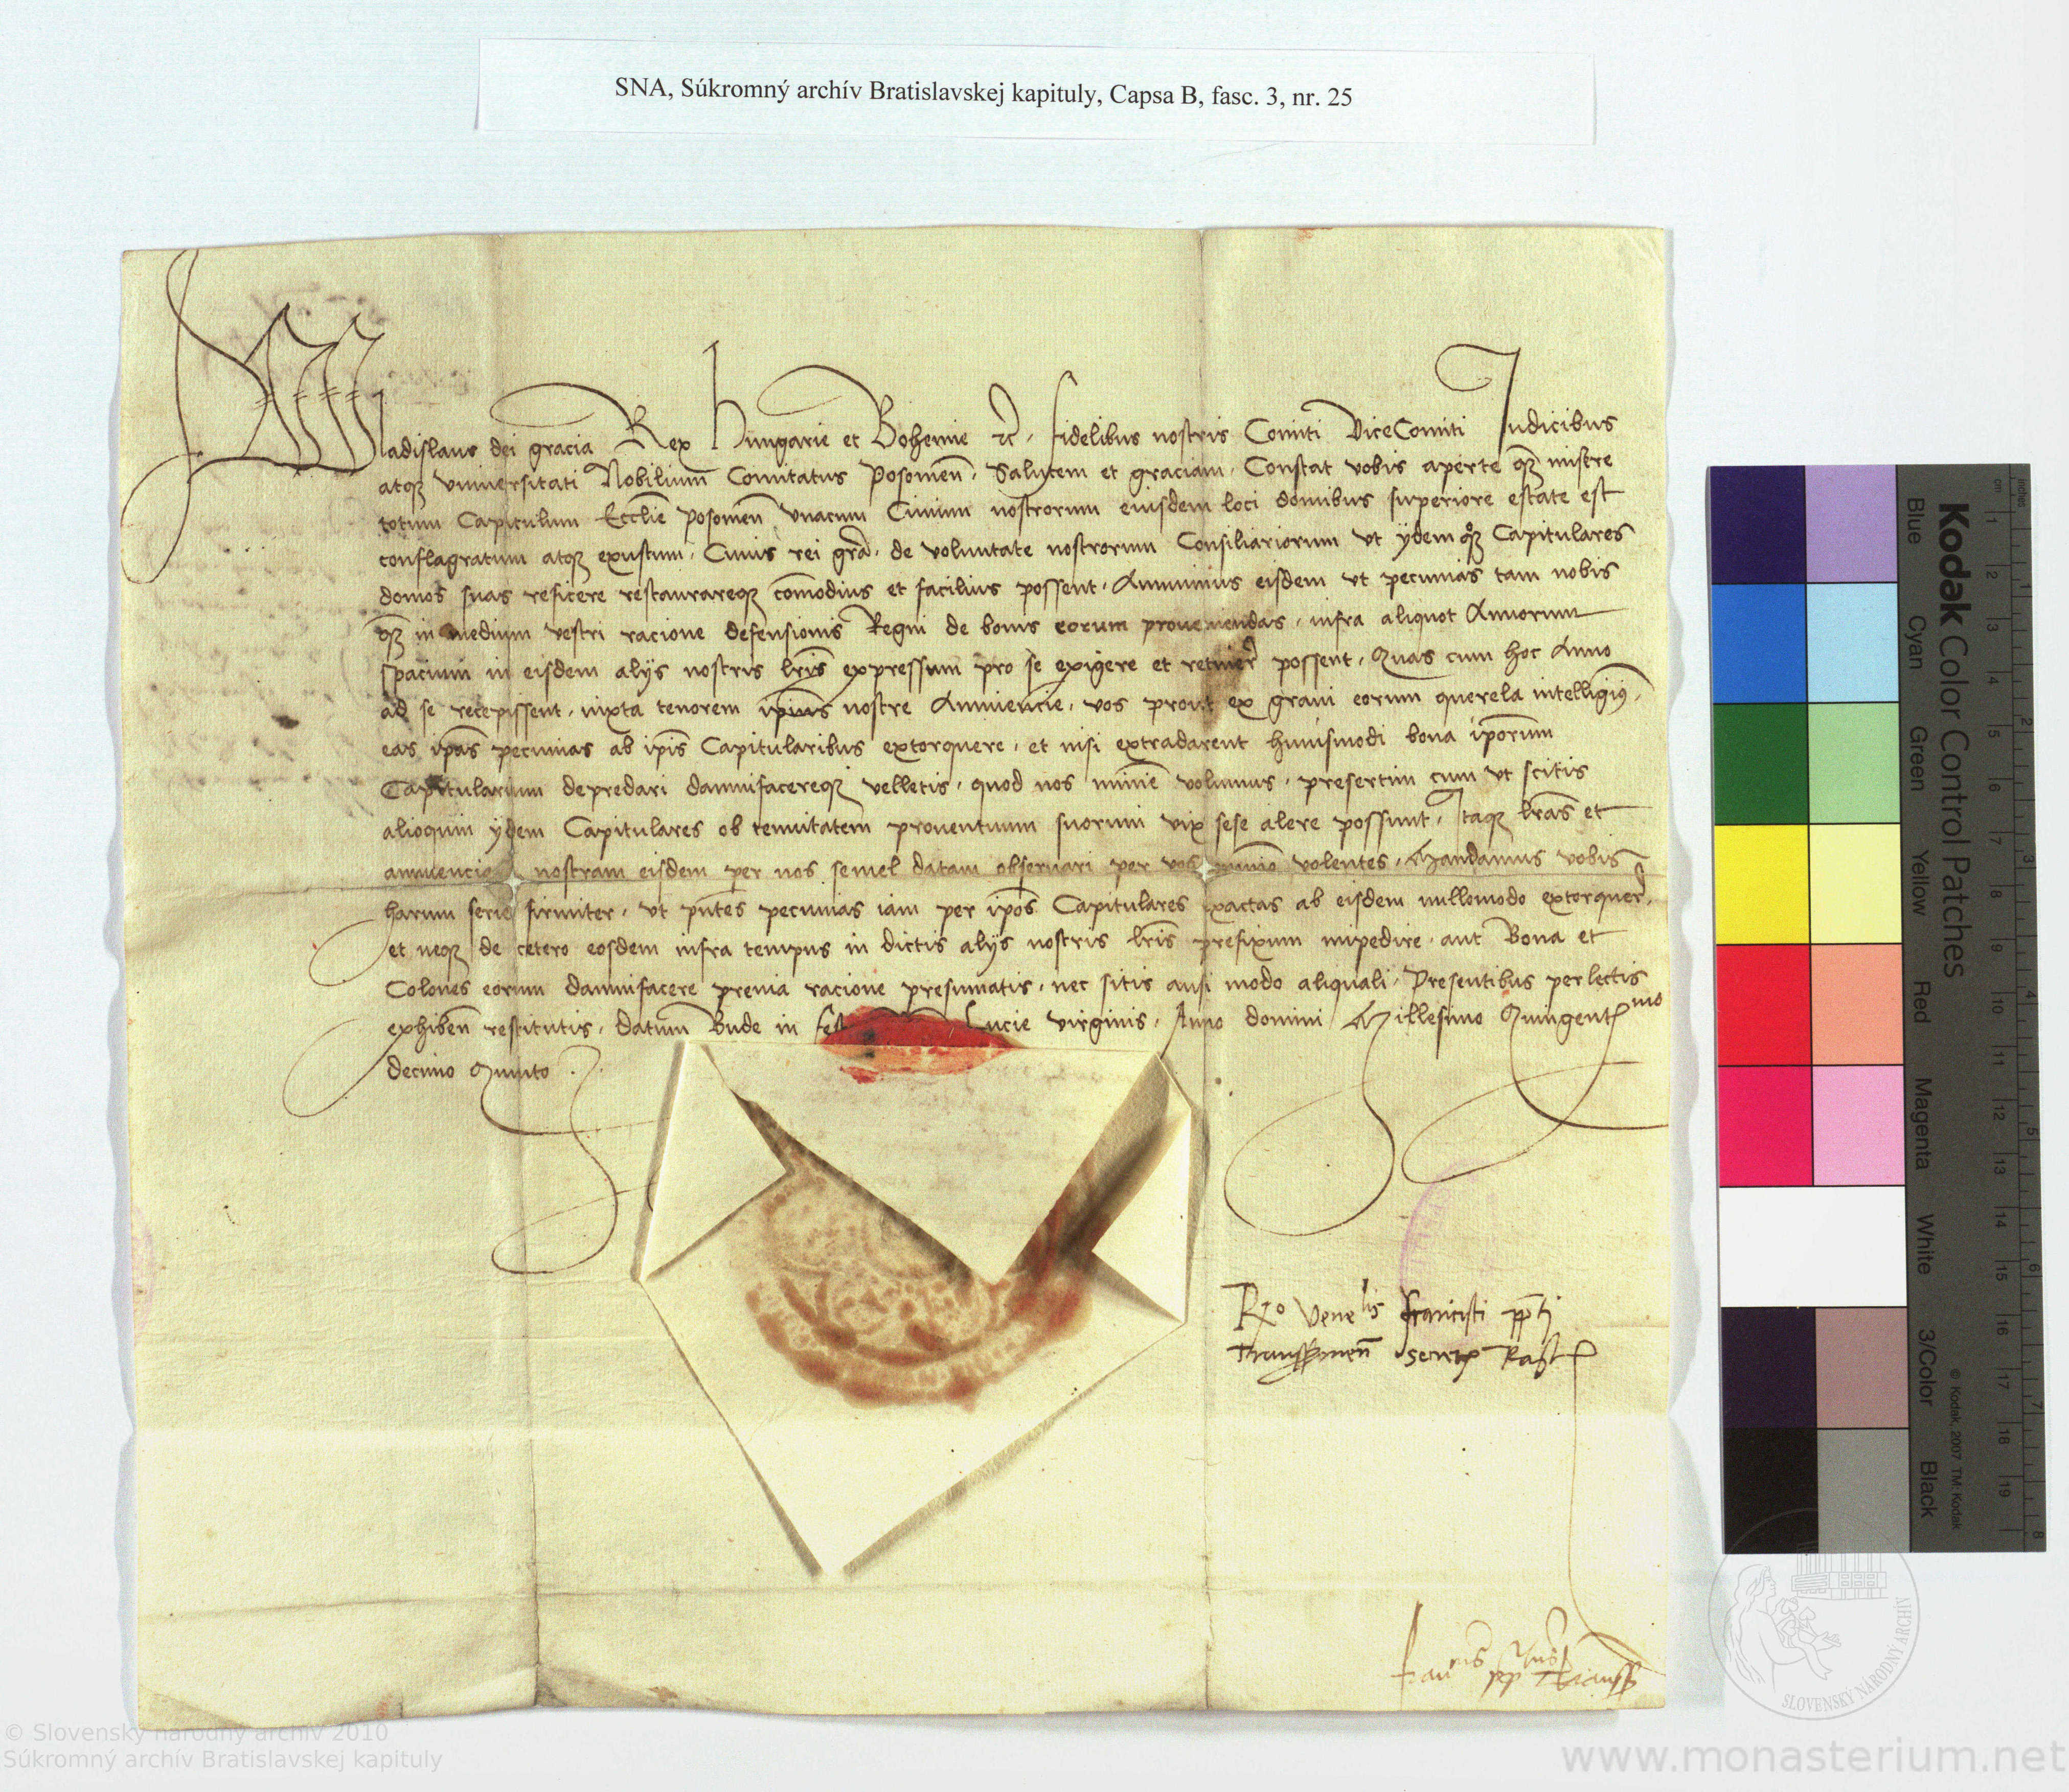 SNA, Súkromný archív Bratislavskej kapituly, Capsa B, fasc. 3, nr. 25
Wladislaus dei gracia Rex Hungarie et Bohemie etc. fidelibus nostris Comiti ViceComiti Judicibus
atqз vniuersitati Nobilium Comitatus Posonien̄. Salutem et graciam. Constat vobis aperte qз
totum Capitulum Ecclīe posonien̄ vnacum Ciuium nostrorum eiusdem loci domibus superiore estate est
conflagratum atqз exustum. Cuius rei grā. de voluntate nostrorum Consiliariorum vt ÿdem Capitulares
domos suas reficere restaurareqз com̄odius et facilius possent. Annuimus eisdem vt pecunias tam nobis
qз in medium vestri racione defensionis Regni de bonis eorum proueniendas. infra aliquot Annorum
spacium in eisdem alÿs nostris lrīs expressum pro se exigere et retiner possent. Quas cum hoc Anno
ad se recepissent. iuxta tenorem ip̄ius nostre Annuencie. vos prout ex graui eorum querela intelligimꝰ.
eas ip̄as pecunias ab ip̄is Capitularibus extorquere. et nisi extradarent huiusmodi bona ip̄orum
Capitularium depredari damnifacereqз velletis. quod nos minīe volumus. presertim cum vt scitis
alioquin ÿdem Capitulares ob tenuitatem prouentuum suorum vix sese alere possunt. Itaqз lrās et
nostram eisdem per nos semel datam obseruari per vos volentes. Mandamus vobis
harum serie firmiter. vt pn̄tes pecunias iam per ip̄os Capitulares exactas ab eisdem nullomodo extorquer.
et neqз de cetero eosdem infra tempus in dictis alÿs nostris lrīs prefixum impedire. aut Bona et
Colones eorum damnifacere premia racione presumatis. nec sitis ausi modo aliquali. Presentibus perlectis
exhiben̄ restitutis. Datum Bude in Lucie virginis. Anno domini Millesimo Quingentmo
decimo Quinto.
francisci pp̄ti
© Slovenský národný archív 2010
Súkromný archív Bratislavskej kapituly
www.monasterium.net
SLOVENSKÝ NÁRODNÝ ARCHÍV
Kodak Color Control Patches
© Kodak, 2007 TM: Kodak
Blue Cyan Green Yellow Red Magenta White 3/Color Black
cm 1 2 3 4 5 6 7 8 9 10 11 12 13 14 15 16 17 18 19
inches 1 2 3 4 5 6 7 8